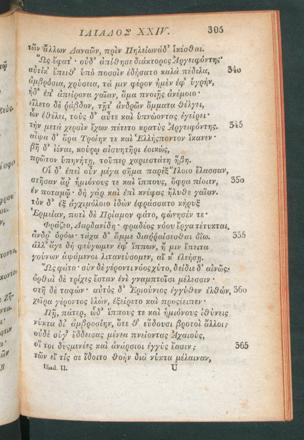 ΙΛΙΑΔΟΣ XXIV. 305
τῶν ἄλλων Δαναῶν, πρὶν Πηλείωνάδ᾽ ἱκέσθαι.
Ὣς ἔφατ᾽· οὐδ᾽ ἀπίθησε διάκτορος Ἀργειφόντης·
αὐτίκ᾽ ἔπειθ᾽ ὑπὸ ποσσὶν ἐδήσατο καλὰ πέδιλα, 340
ἀμβρόσια, χρύσεια, τά μιν φέρον ἠμὲν ἐφ᾽ ὑγρὴν,
ἠδ᾽ ἐπ᾽ ἀπείρονα γαῖαν, ἅμα πνοιῇς ἀνέμοιο·
εἵλετο δὲ ῥάβδον, τῇτ᾽ ἀνδρῶν ὄμματα θέλγει,
ὧν ἐθέλει, τοὺς δ᾽ αὖτε καὶ ὑπνώοντας ἐγείρει·
τὴν μετὰ χερσὶν ἔχων πέτετο κρατὺς Ἀργειφόντης. 345
αἶψα δ᾽ ἄρα Τροίην τε καὶ Ἑλλήσποντον ἵκανεν·
βῆ δ᾽ ἰέναι, κούρῳ αἰσυητῆρι ἐοικὼς,
πρῶτον ὑπηνήτῃ, τοῦπερ χαριεστάτη ἥβη.
Οἱ δ᾽ ἐπεὶ οὖν μέγα σῆμα παρὲξ Ἴλοιο ἔλασσαν,
στῆσαν ἄρ᾽ ἡμιόνους τε καὶ ἵππους, ὄφρα πίοιεν, 350
ἐν ποταμῷ· δὴ γὰρ καὶ ἐπὶ κνέφας ἤλυθε γαῖαν.
τὸν δ᾽ ἐξ ἀγχιμόλοιο ἰδὼν ἐφράσσατο κήρυξ
Ἑρμείαν, ποτὶ δὲ Πρίαμον φάτο, φώνησέν τε·
Φράζεο, Δαρδανίδη· φραδέος νόου ἔργα τέτυκται,
ἄνδρ᾽ ὁρόω· τάχα δ᾽ ἄμμε διαῤῥαίσεσθαι ὀΐω. 355
ἀλλ᾽ ἄγε δὴ φεύγωμεν ἐφ᾽ ἵππων, ἤ μιν ἔπειτα
γούνων ἁψάμενοι λιτανεύσομεν, αἴ κ᾽ ἐλεήσῃ.
Ὣς φάτο· σὺν δὲ γέροντι νόος χύτο, δείδιε δ᾽ αἰνῶς·
ὀρθαὶ δὲ τρίχες ἔσταν ἐνὶ γναμπτοῖσι μέλεσσιν·
στῆ δὲ ταφών· αὐτὸς δ᾽ Ἐριούνιος ἐγγύθεν ἐλθὼν, 360
χεῖρα γέροντος ἑλὼν, ἐξείρετο καὶ προσέειπεν·
Πῆ, πάτερ, ὧδ᾽ ἵππους τε καὶ ἡμιόνους ἰθύνεις
νύκτα δι᾽ ἀμβροσίην, ὅτε θ᾽ εὕδουσι βροτοὶ ἄλλοι;
οὐδὲ σύγ᾽ ἔδδεισας μένεα πνείοντας Ἀχαιοὺς,
οἵ τοι δυσμενέες καὶ ἀνάρσιοι ἐγγὺς ἔασιν; 365
τῶν εἴ τίς σε ἴδοιτο θοὴν διὰ νύκτα μέλαιναν,
Iliad. II. U